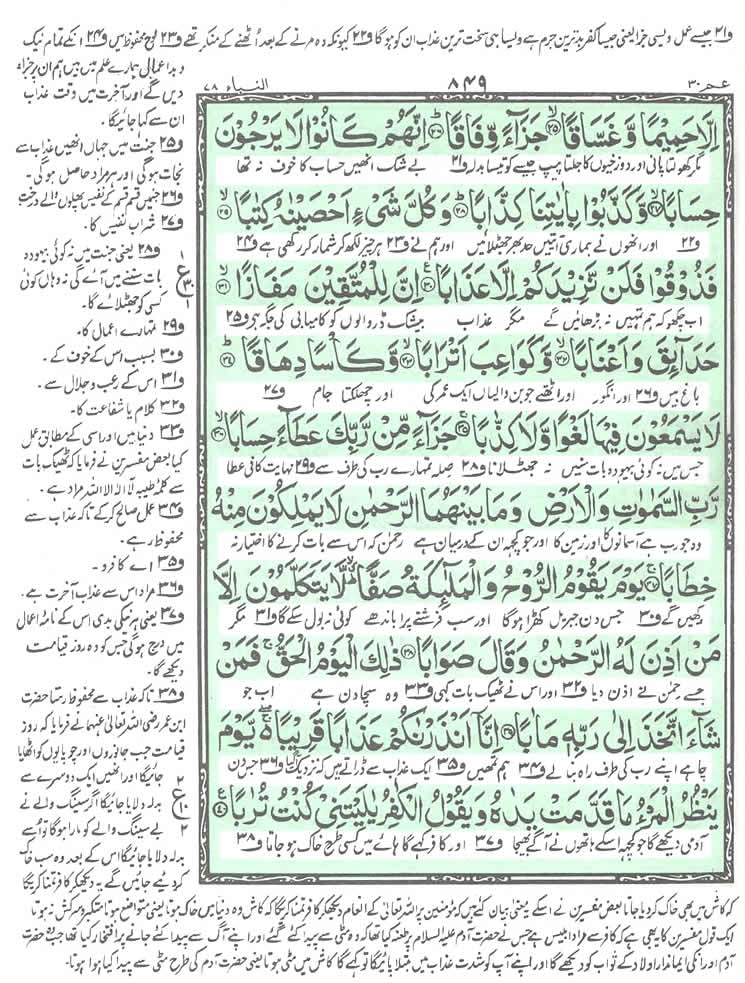 و۲۱ جیسے عمل ویسی جزا یعنی جیسا کفر بدترین جرم ہے ویسا ہی سخت ترین عذاب ان کو ہوگا و۲۲ کیونکہ وہ مرنے کے بعد اُٹھنے کے منکر تھے و۲۳ لوح محفوظ میں و۲۴ انکے تمام نیک
و بد اعمال ہمارے علم میں ہیں ہم ان پر جزاء
دیں گے اور آخرت میں وقت عذاب
ان سے کہا جائیگا۔
و۲۵ جنت میں جہاں انھیں عذاب سے
نجات ہوگی اور ہر مراد حاصل ہوگی۔
و۲۶ جنمیں قسم قسم کے نفیس پھلوں والے درخت
و۲۷ شراب نفیس کا۔
و۲۸ یعنی جنت میں نہ کوئی بیہودہ
بات سننے میں آئے گی نہ وہاں کوئی
کسی کو جھٹلائے گا۔
و۲۹ تمہارے اعمال کا۔
و۳۰ بسبب اس کے خوف کے۔
و۳۱ اس کے رعب و جلال سے۔
و۳۲ کلام یا شفاعت کا۔
و۳۳ دنیا میں اور اسی کے مطابق عمل
کیا بعض مفسرین نے فرمایا کہ ٹھیک بات
سے کلمہ طیبہ لا الٰہ الا اللہ مراد ہے۔
و۳۴ عمل صالح کرکے تاکہ عذاب سے
محفوظ رہے۔
و۳۵ اے کافرو۔
و۳۶ مراد اس سے عذاب آخرت ہے۔
و۳۷ یعنی ہر نیکی بدی اس کے نامۂ اعمال
میں درج ہوگی جس کو وہ روز قیامت
دیکھے گا۔
و۳۸ تاکہ عذاب سے محفوظ رہتا حضرت
ابن عمر رضی اللہ تعالیٰ عنہما نے فرمایا کہ روز
قیامت جب جانوروں اور چوپایوں کو اٹھایا
جائیگا اور انھیں ایک دوسرے سے
بدلہ دلایا جائیگا اگر سینگ والے نے
بے سینگ والے کو مارا ہوگا تو اُسے
بدلہ دلایا جائیگا اس کے بعد وہ سب خاک
کردئیے جائیں گے یہ دیکھ کر کافر تمنا کریگا
عـم ۳۰
۸۴۹
النبـاء ۷۸
اِلَّا حَمِیْمًا وَّ غَسَّاقًا ﴿۲۵﴾ جَزَآءً وِّفَاقًا ﴿۲۶﴾ اِنَّهُمْ كَانُوْا لَا یَرْجُوْنَ
مگر کھولتا پانی اور دوزخیوں کا جلتا پیپ جیسے کو تیسا بدلہ و۲۱ بے شک انھیں حساب کا خوف نہ تھا
حِسَابًا ﴿۲۷﴾ وَّ كَذَّبُوْا بِاٰیٰتِنَا كِذَّابًا ﴿۲۸﴾ وَ كُلَّ شَیْءٍ اَحْصَیْنٰهُ كِتٰبًا ﴿۲۹﴾
و۲۲ اور انھوں نے ہماری آیتیں حد بھر جھٹلائیں اور ہم نے و۲۳ ہر چیز لکھ کر شمار کر رکھی ہے و۲۴
فَذُوْقُوْا فَلَنْ نَّزِیْدَكُمْ اِلَّا عَذَابًا ﴿۳۰﴾ اِنَّ لِلْمُتَّقِیْنَ مَفَازًا ﴿۳۱﴾
اب چکھو کہ ہم تمہیں نہ بڑھائیں گے مگر عذاب بیشک ڈر والوں کو کامیابی کی جگہ ہے و۲۵
حَدَآىِٕقَ وَ اَعْنَابًا ﴿۳۲﴾ وَّ كَوَاعِبَ اَتْرَابًا ﴿۳۳﴾ وَّ كَاْسًا دِهَاقًا ﴿۳۴﴾
باغ ہیں و۲۶ اور انگور اور اٹھتے جوبن والیاں ایک عمر کی اور چھلکتا جام و۲۷
لَا یَسْمَعُوْنَ فِیْهَا لَغْوًا وَّ لَا كِذّٰبًا ﴿۳۵﴾ جَزَآءً مِّنْ رَّبِّكَ عَطَآءً حِسَابًا ﴿۳۶﴾
جس میں نہ کوئی بیہودہ بات سنیں نہ جھٹلانا و۲۸ صلہ تمہارے رب کی طرف سے و۲۹ نہایت کافی عطا
رَّبِّ السَّمٰوٰتِ وَ الْاَرْضِ وَ مَا بَیْنَهُمَا الرَّحْمٰنِ لَا یَمْلِكُوْنَ مِنْهُ
وہ جو رب ہے آسمانوں کا اور زمین کا اور جو کچھ ان کے درمیان ہے رحمٰن کہ اس سے بات کرنے کا اختیار نہ
خِطَابًا ﴿۳۷﴾ یَوْمَ یَقُوْمُ الرُّوْحُ وَ الْمَلٰٓىِٕكَةُ صَفًّا لَّا یَتَكَلَّمُوْنَ اِلَّا
رکھیں گے و۳۰ جس دن جبریل کھڑا ہوگا اور سب فرشتے پرا باندھے کوئی نہ بول سکے گا و۳۱ مگر
مَنْ اَذِنَ لَهُ الرَّحْمٰنُ وَ قَالَ صَوَابًا ﴿۳۸﴾ ذٰلِكَ الْیَوْمُ الْحَقُّ فَمَنْ
جسے رحمٰن نے اذن دیا و۳۲ اور اس نے ٹھیک بات کہی و۳۳ وہ سچا دن ہے اب جو
شَآءَ اتَّخَذَ اِلٰى رَبِّهٖ مَاٰبًا ﴿۳۹﴾ اِنَّاۤ اَنْذَرْنٰكُمْ عَذَابًا قَرِیْبًا یَّوْمَ
چاہے اپنے رب کی طرف راہ بنالے و۳۴ ہم تمھیں و۳۵ ایک عذاب سے ڈراتے ہیں کہ نزدیک آگیا و۳۶ جس دن
یَنْظُرُ الْمَرْءُ مَا قَدَّمَتْ یَدٰهُ وَ یَقُوْلُ الْكٰفِرُ یٰلَیْتَنِیْ كُنْتُ تُرٰبًا ﴿۴۰﴾
آدمی دیکھے گا جو کچھ اسکے ہاتھوں نے آگے بھیجا و۳۷ اور کافر کہے گا ہائے میں کسی طرح خاک ہوجاتا و۳۸
کہ کاش میں بھی خاک کردیا جاتا بعض مفسرین نے اسکے یہ معنی بیان کئے ہیں کہ مؤمنین پر اللہ تعالیٰ کے انعام دیکھ کر کافر تمنا کریگا کہ کاش وہ دنیا میں خاک ہوتا یعنی متواضع ہوتا متکبر و سرکش نہ ہوتا
ایک قول مفسرین کا یہ بھی ہے کہ کافر سے مراد ابلیس ہے جس نے حضرت آدم علیہ السلام پر طعنہ کیا تھا کہ وہ مٹی سے پیدا کئے گئے اور اپنے آگ سے پیدا کئے جانے پر افتخار کیا تھا جب وہ حضرت
آدم اور انکی ایماندار اولاد کے ثواب کو دیکھے گا اور اپنے آپ کو شدت عذاب میں مبتلا پائیگا تو کہے گا کاش میں مٹی ہوتا یعنی حضرت آدم کی طرح مٹی سے پیدا کیا ہوا ہوتا۔